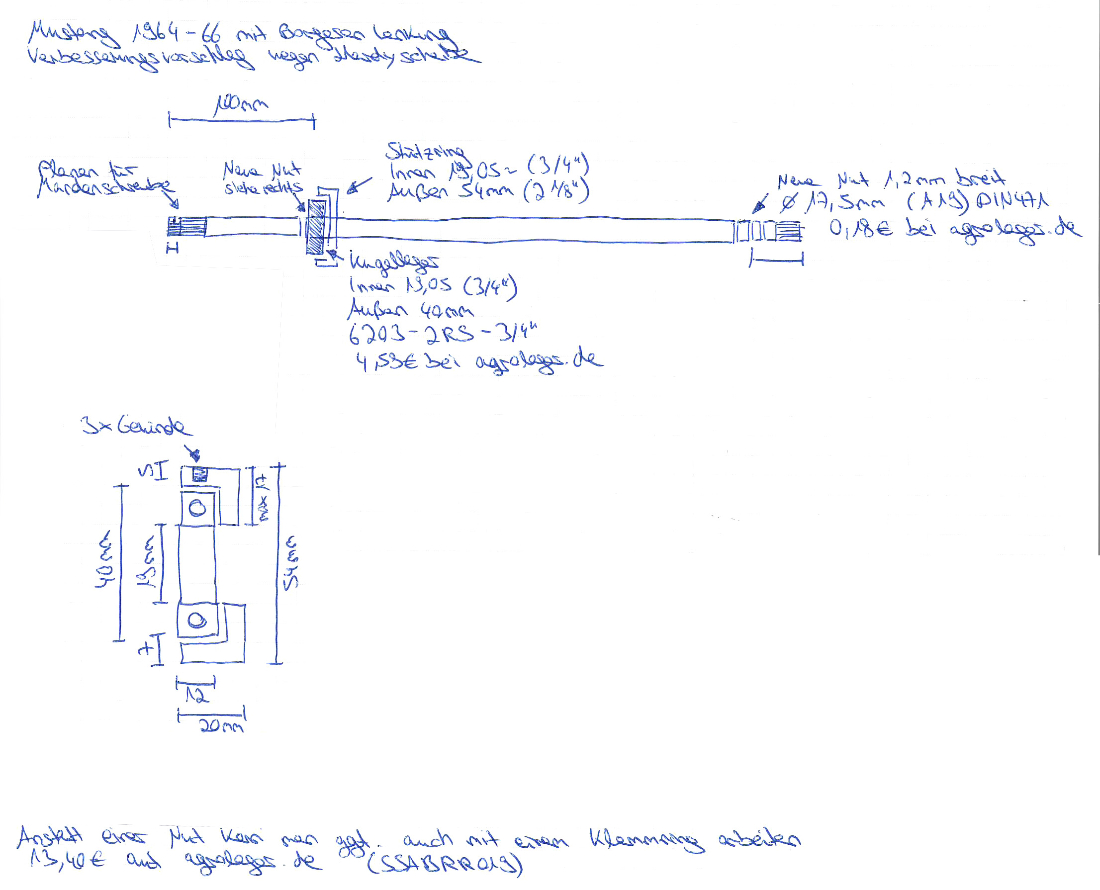 Mustang 1964-66 mit Borgeson Lenkung
Verbesserungsvorschlag wegen Hardyscheibe
100mm
Planen für
Mardenscheibe
Neue Nut
siehe rechts
Stützring
Innen 19,05 = (3/4")
Außen 54mm (2 1/8")
Neue Nut 1,2mm breit
Ø 17,5mm (A19) DIN471
0,18€ bei agrolager.de
Kugellager
Innen 19,05 (3/4")
Außen 40mm
6203-2RS-3/4"
4,53€ bei agrolager.de
3x Gewinde
5
17 max
40mm
19mm
54mm
7
12
20mm
Anstatt einer Nut kann man ggf. auch mit einem Klemmring arbeiten
13,40€ auf agrolager.de (SSABRR019)